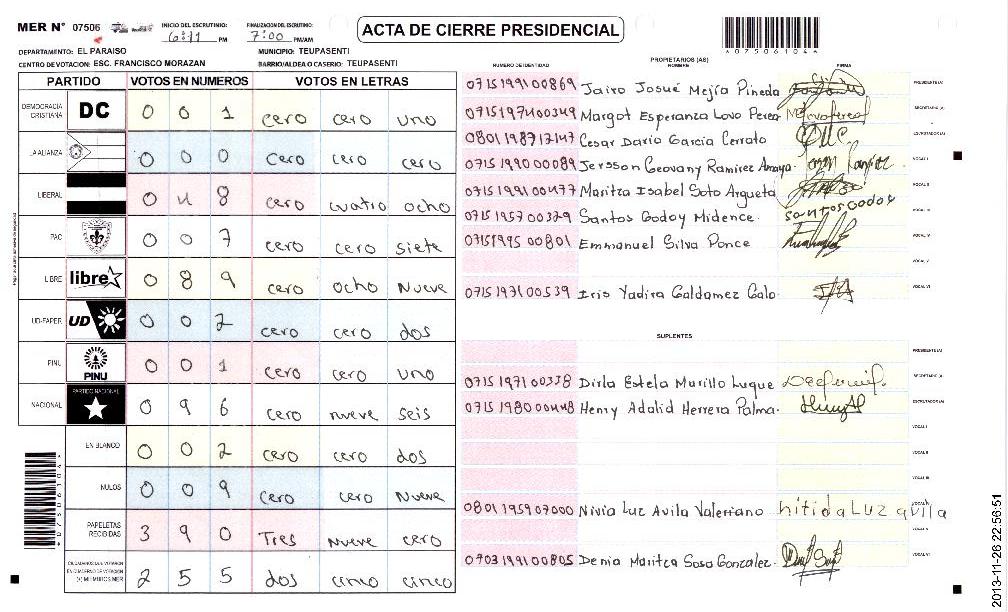 MER N° 07506
INICIO DEL ESCRUTINIO: 6:11 PM
FINALIZACION DEL ESCRUTINIO: 7:00 PM/AM
ACTA DE CIERRE PRESIDENCIAL
*07506104*
DEPARTAMENTO: EL PARAISO
MUNICIPIO: TEUPASENTI
CENTRO DE VOTACION: ESC. FRANCISCO MORAZAN
BARRIO/ALDEA O CASERIO: TEUPASENTI
PARTIDO VOTOS EN NUMEROS VOTOS EN LETRAS
DEMOCRACIA CRISTIANA DC 0 0 1 cero cero uno
LA ALIANZA 0 0 0 cero cero cero
LIBERAL 0 4 8 cero cuatro ocho
PAC 0 0 7 cero cero siete
LIBRE libre 0 8 9 cero ocho Nueve
UD-FAPER UD 0 0 2 cero cero dos
PINU PINU 0 0 1 cero cero uno
NACIONAL PARTIDO NACIONAL 0 9 6 cero nueve seis
EN BLANCO 0 0 2 cero cero dos
NULOS 0 0 9 cero cero Nueve
PAPELETAS RECIBIDAS 3 9 0 Tres Nueve cero
CIUDADANOS QUE VOTARON EN CUADERNO DE VOTACION (+) MIEMBROS MER 2 5 5 dos cinco cinco
*07506104*
PROPIETARIOS (AS)
NUMERO DE IDENTIDAD NOMBRE FIRMA
0715199100869 Jairo Josué Mejía Pineda PRESIDENTE(A)
0715197400349 Margot Esperanza Lovo Perea SECRETARIO (A)
0801198712147 Cesar Dario García Cerrato ESCRUTADOR (A)
0715199000089 Jersson Geovany Ramirez Amaya VOCAL I
0715199100477 Maritza Isabel Soto Argueta VOCAL II
0715195700329 Santos Godoy Midence. santos Godoy VOCAL III
0715199500801 Emmanuel Silva Ponce VOCAL IV
VOCAL V
0715197100539 Iris Yadira Galdamez Galo. VOCAL VI
SUPLENTES
PRESIDENTE (A)
0715197100338 Dirla Estela Murillo Luque SECRETARIO (A)
0715198000448 Henry Adalid Herrera Palma. ESCRUTADOR (A)
VOCAL I
VOCAL II
VOCAL III
0801195907000 Nivia Luz Avila Valeriano nitida LUZ avila VOCAL IV
VOCAL V
0703199100805 Denia Maritza Sosa Gonzalez. VOCAL VI
2013-11-26 22:56:51